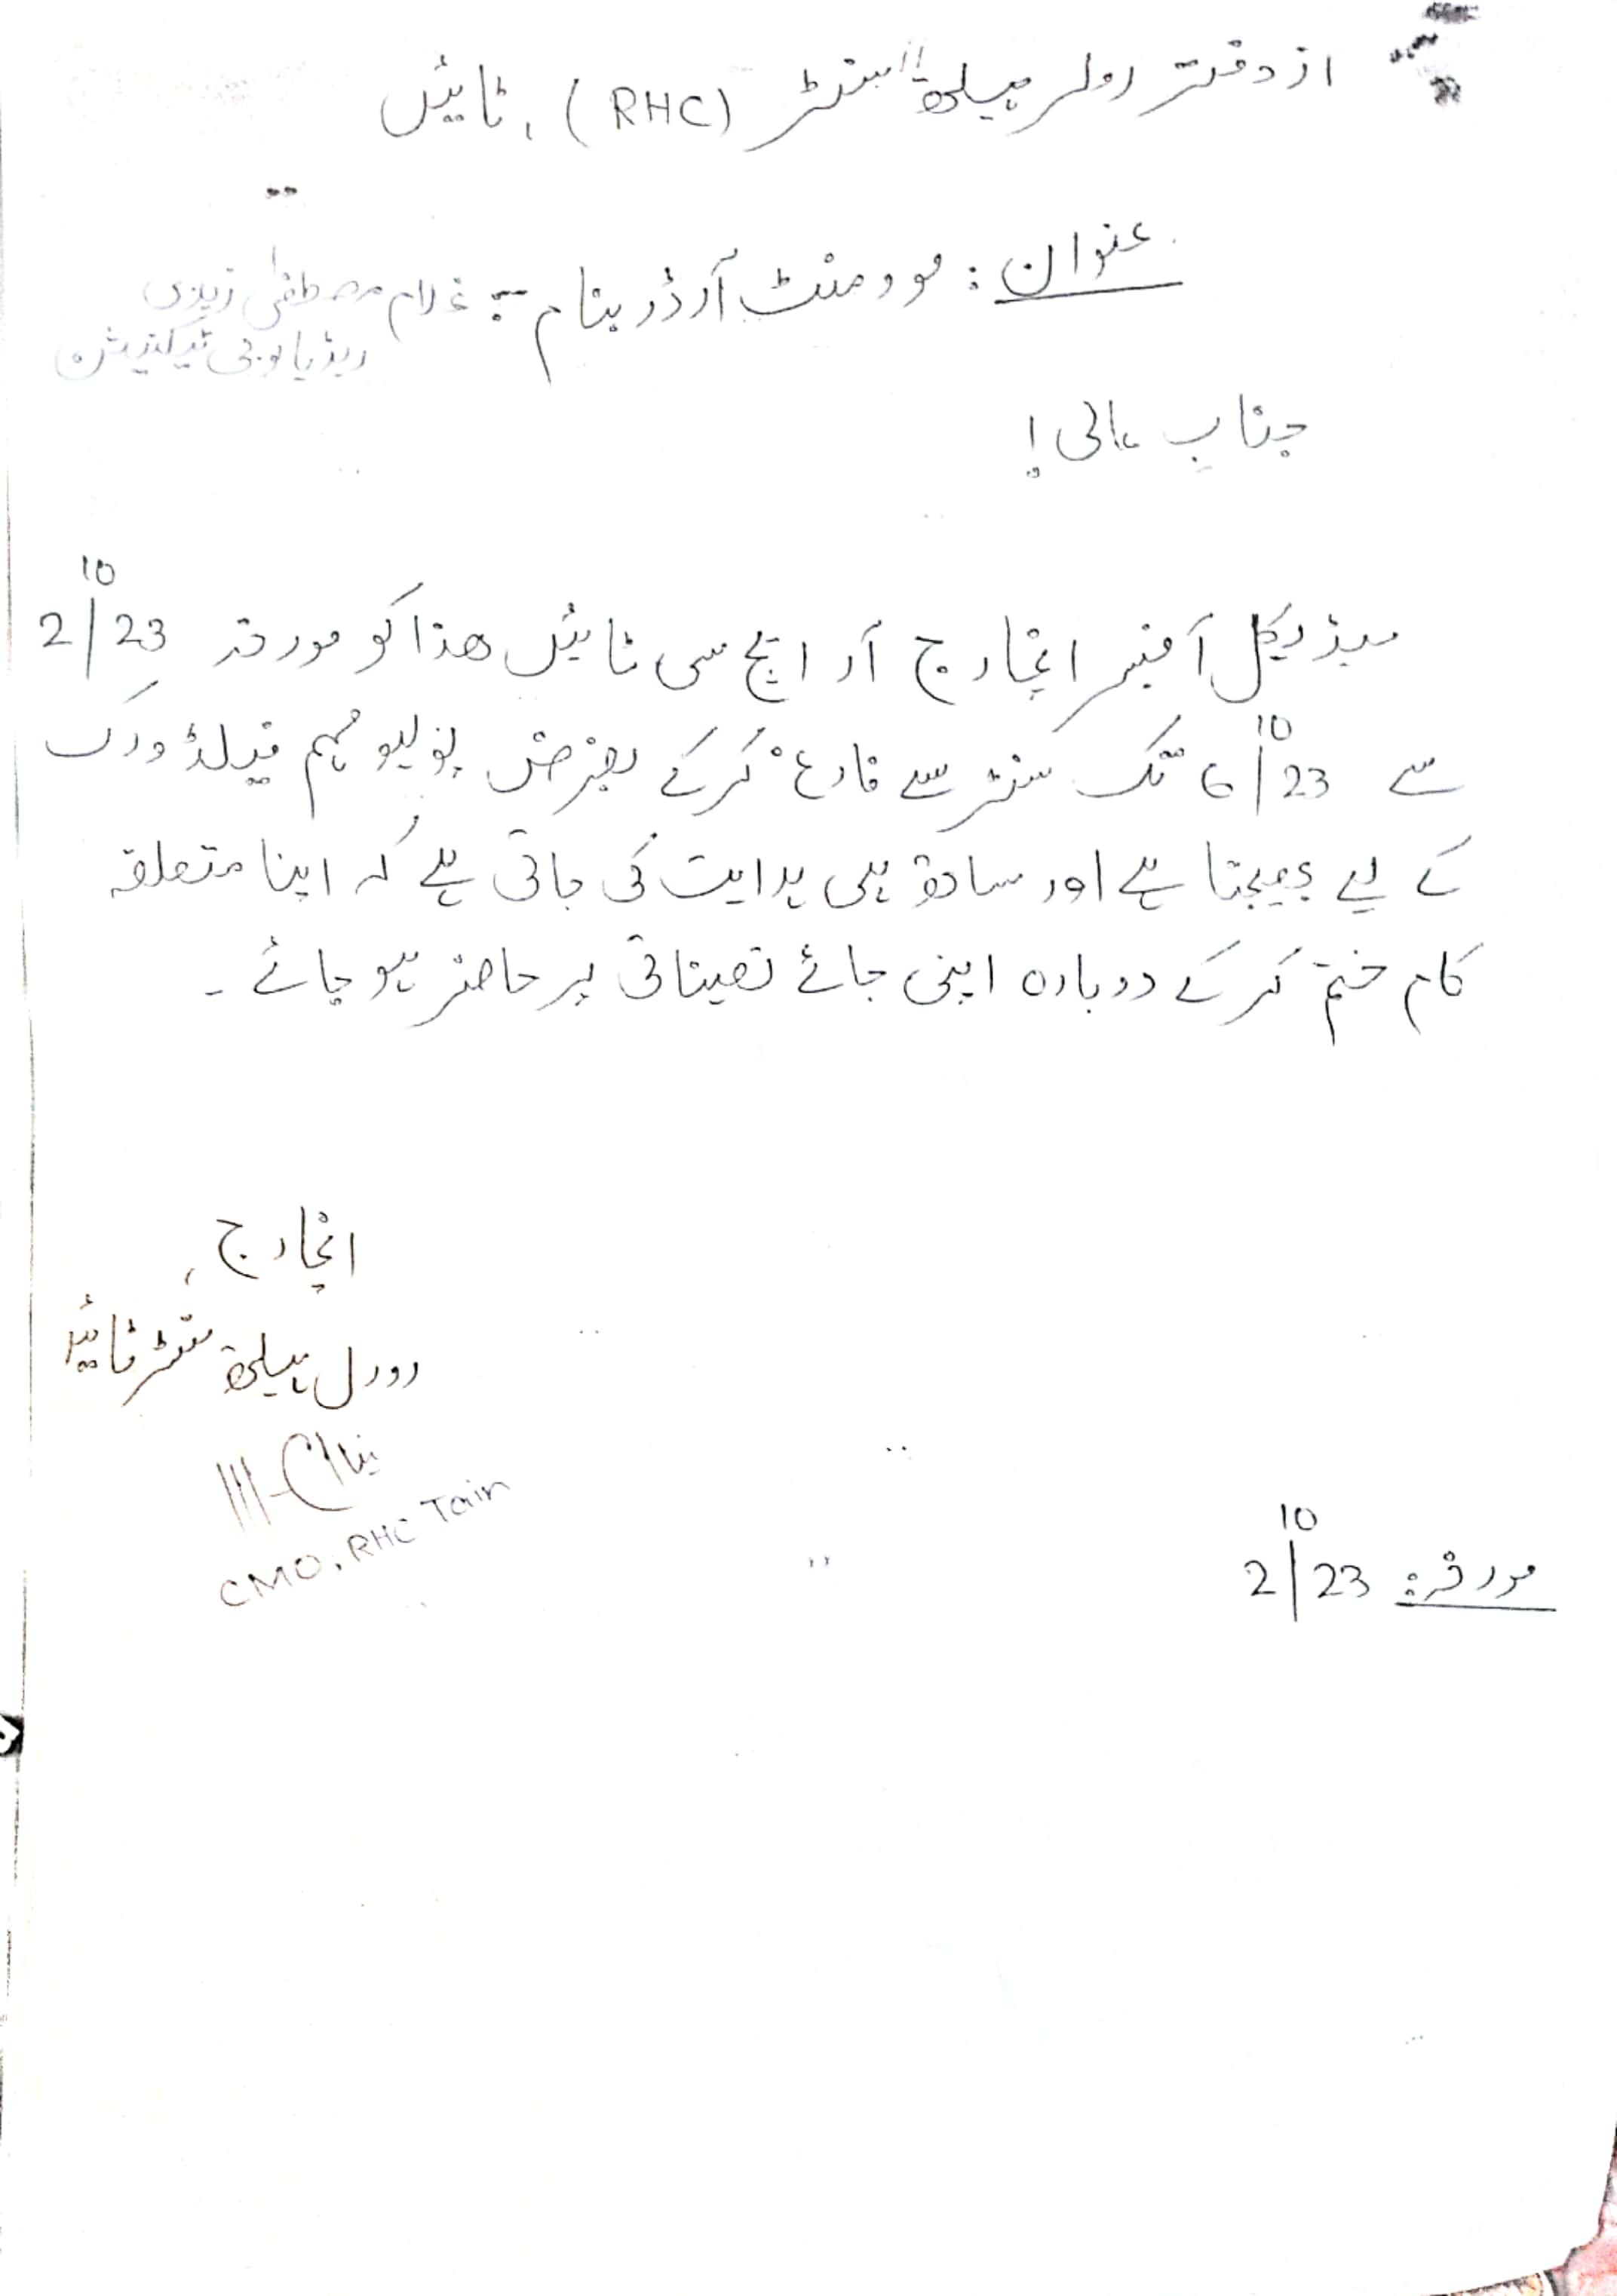 از دفتر رولر ہیلتھ سنٹر (RHC)، ٹائیں
عنوان: موومنٹ آرڈر بنام :- غلام مصطفیٰ زیدی
ریڈیالوجی ٹیکنیشن
جناب عالی!
میڈیکل آفیسر انچارج آر ایچ سی ٹائیں ھذا کو مورخہ 2/10/23
سے 6/10/23 تک سنٹر سے فارغ کرکے بغرض پولیو مہم فیلڈ ورک
کے لیے بھیجتا ہے اور ساتھ ہی ہدایت کی جاتی ہے کہ اپنا متعلقہ
کام ختم کرکے دوبارہ اپنی جائے تعیناتی پر حاضر ہو جائے ۔
انچارج،
رورل ہیلتھ سنٹر ٹائیں
CMO, RHC Tain
مورخہ: 2/10/23